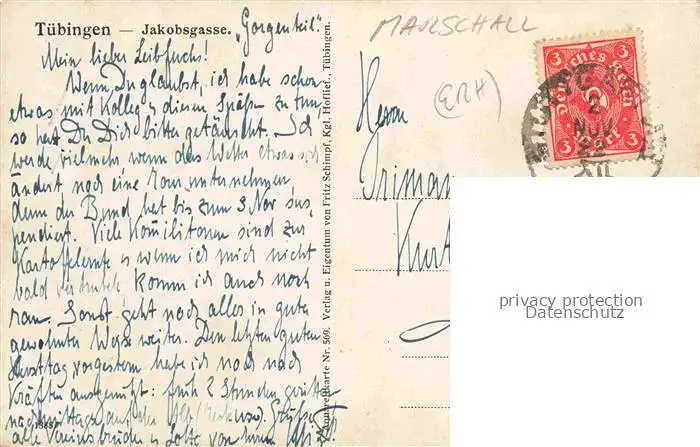 Tübingen — Jakobsgasse. „Gorgenteil".
Mein lieber Leibfuchs!
Wenn Du glaubst, ich habe schon
etwas mit Kolleg u diesen Späßen zu tun,
so hast Du Dich bitter getäuscht. Ich
werde vielmehr wenn das Wetter etwas sich
ändert noch eine Tour unternehmen,
denn der Bund hat bis zum 3 Nov sus-
pendiert. Viele Komilitonen sind zur
Kartoffelernte u wenn ich mich nicht
bald komm ich auch noch
ran. Sonst geht noch alles in guter
gewohnter Weise weiter. Den letzten guten
Herbsttag, vorgestern habe ich noch nach
Kräften ausgenutzt: früh 2 Stunden geritten
nachmittags auf der Grüße
alle Vereinsbrüder u Lotte von
Aquarellkarte Nr. 569. Verlag u. Eigentum von Fritz Schimpf, Kgl. Hoflief., Tübingen.
MARSCHALL
(ERH)
Herrn
Kurt
3 3
Deutsches Reich
3 3
2
NOV
22
privacy protection
Datenschutz